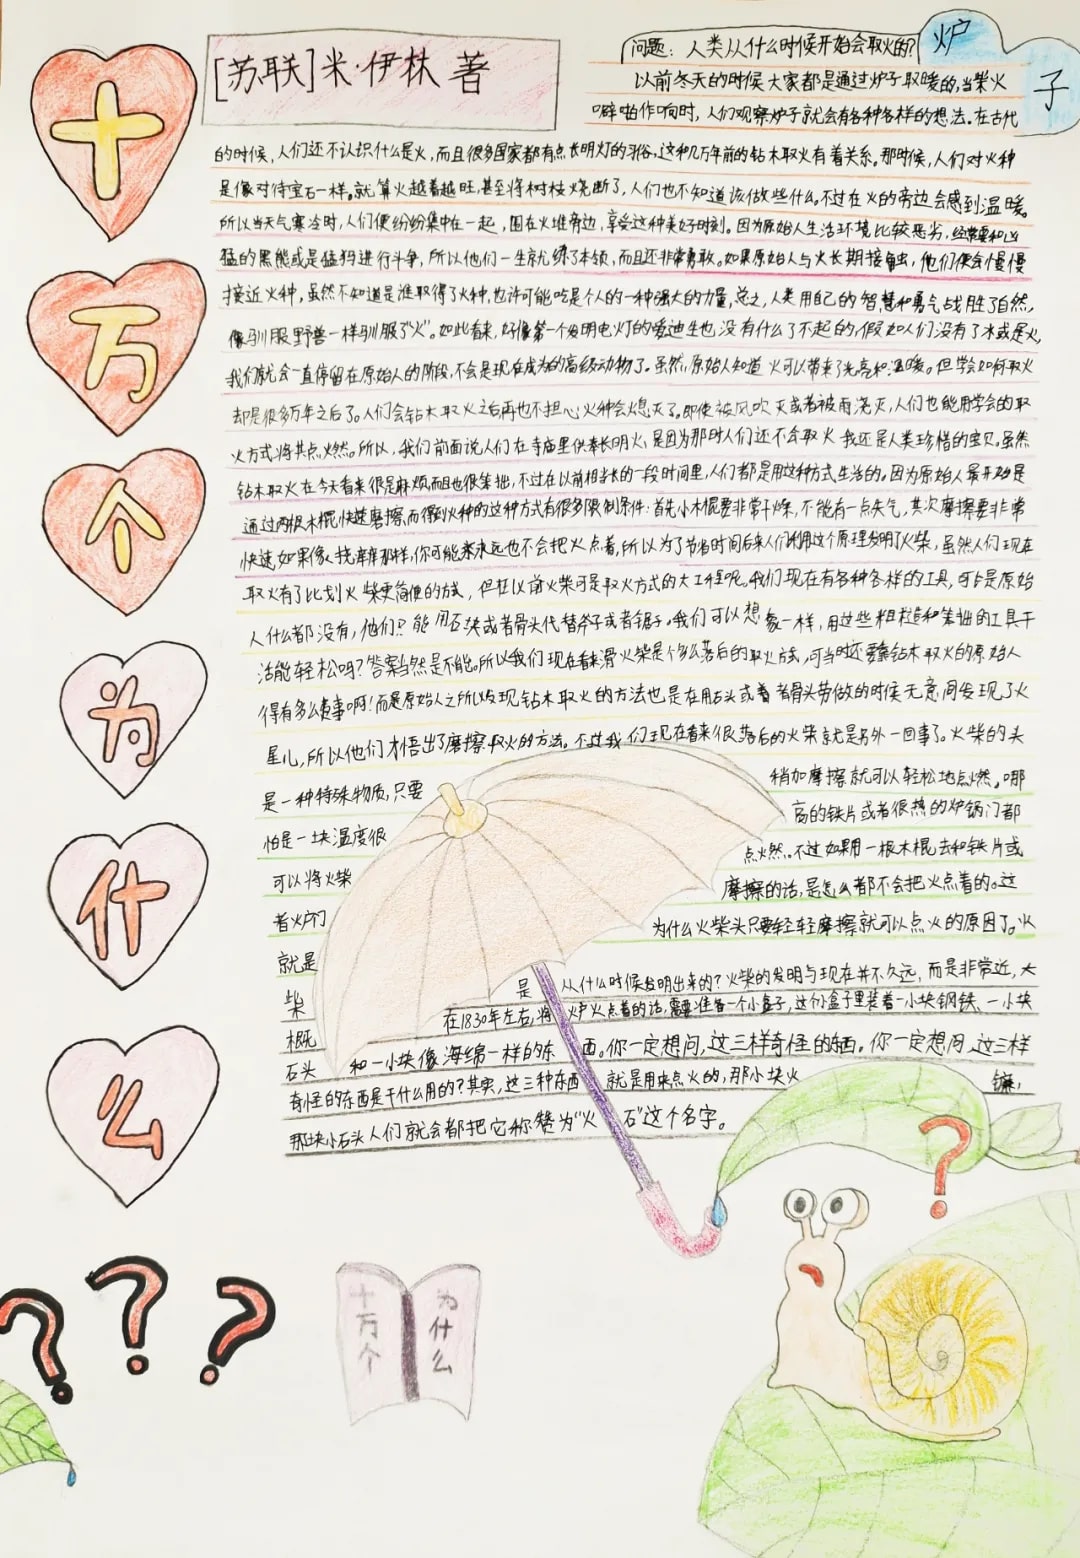 十
万
个
为
什
么
[苏联]米·伊林 著
炉
子
问题：人类从什么时候开始会取火的？
以前冬天的时候大家都是通过炉子取暖的，当柴火
噼啪作响时，人们观察炉子就会有各种各样的想法。在古代
的时候，人们还不认识什么是火，而且很多国家都有点长明灯的习俗，这种几万年前的钻木取火有着关系。那时候，人们对火种
是像对待宝石一样。就算火越着越旺，甚至将树枝烧断了，人们也不知道该做些什么。不过在火的旁边会感到温暖。
所以当天气寒冷时，人们便纷纷集中在一起，围在火堆旁边，享受这种美好时刻。因为原始人生活环境比较恶劣，经常要和凶
猛的黑熊或是猛犸进行斗争，所以他们一生就练了本领，而且还非常勇敢。如果原始人与火长期接触，他们便会慢慢
接近火种，虽然不知道是谁取得了火种，也许可能吃是个人的一种强大的力量，总之，人类用自己的智慧和勇气战胜了自然，
像驯服野兽一样驯服了“火”。如此看来，好像第一个发明电灯的爱迪生也没有什么了不起的，假如人们没有了冰或是火，
我们就会一直停留在原始人的阶段，不会是现在成为的高级动物了。虽然，原始人知道火可以带来了光亮和温暖。但学会如何取火
却是很多万年之后了。人们会钻木取火之后再也不担心火种会熄灭了。即使被风吹灭或者被雨浇灭，人们也能用学会的取
火方式将其点火燃。所以，我们前面说人们在寺庙里供奉长明火，是因为那时人们还不会取火 我还是人类珍惜的宝贝。虽然
钻木取火在今天看来很是麻烦而且也很笨拙，不过在以前相当长的一段时间里，人们都是用这种方式生活的。因为原始人最开始是
通过两根木棍快速磨擦而得到火种的这种方式有很多限制条件：首先小木棍要非常干燥，不能有一点失气，其次摩擦要非常
快速，如果像 挠痒痒那样，你可能永远也不会把火点着，所以为了节省时间后来人们利用这个原理发明了火柴，虽然人们现在
取火有了比划火柴更简便的方式，但在以前火柴可是取火方式的大工程呢。我们现在有各种各样的工具，可是原始
人什么都没有，他们？能用石块或者骨头代替斧子或者锯子。我们可以想象一样，用这些粗糙和笨拙的工具干
活能轻松吗？答案当然是不能。所以我们现在看来滑火柴是个多么落后的取火方法，可当时还要靠钻木取火的原始人
得有多么费事啊！而是原始人之所以发现钻木取火的方法也是在用石头或着者骨头劳做的时候无意间发现了火
星儿，所以他们才悟出了磨擦取火的方法。不过我们现在看来很落后的火柴就是另外一回事了。火柴的头
是一种特殊物质，只要 稍加摩擦就可以轻松地点燃。哪
怕是一块温度很 高的铁片或者很热的炉锅门都
可以将火柴 点火燃。不过如果用一根木棍去和铁片或
者火炉门 摩擦的话，是怎么都不会把火点着的。这
就是 为什么火柴头只要轻轻摩擦就可以点火的原因了。火
柴 是 从什么时候发明出来的？火柴的发明与现在并不久远，而是非常近，大
概 在1830年左右，将炉火点着的话，需要准备一个小盒子，这个小盒子里装着一小块钢铁、一小块
石头 和一小块像海绵一样的东西。你一定想问，这三样奇怪的东西。你一定想问，这三样
奇怪的东西是干什么用的？其实，这三种东西 就是用来点火的，那小块火 镰，
那块小石头人们就会都把它称赞为“火石”这个名字。
十万个
为什么